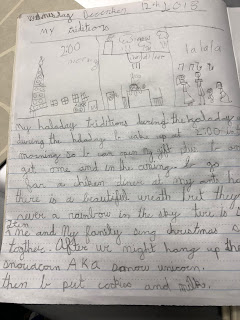 Wednesday December 12th 2018
My traditions
2:00
morning
lalala
My holiday traditions during the holaday
during the holaday I wake up at 2:00 in
morning so I can
get one and in the I go
for a chiken diner at my
there is a beautiful wreath but theres
never a rainbow in the sky
Then
me and my family sing christmas
togther. After we might hang up the
snowacorn AKA snow unicorn.
then I put cookies and milke.